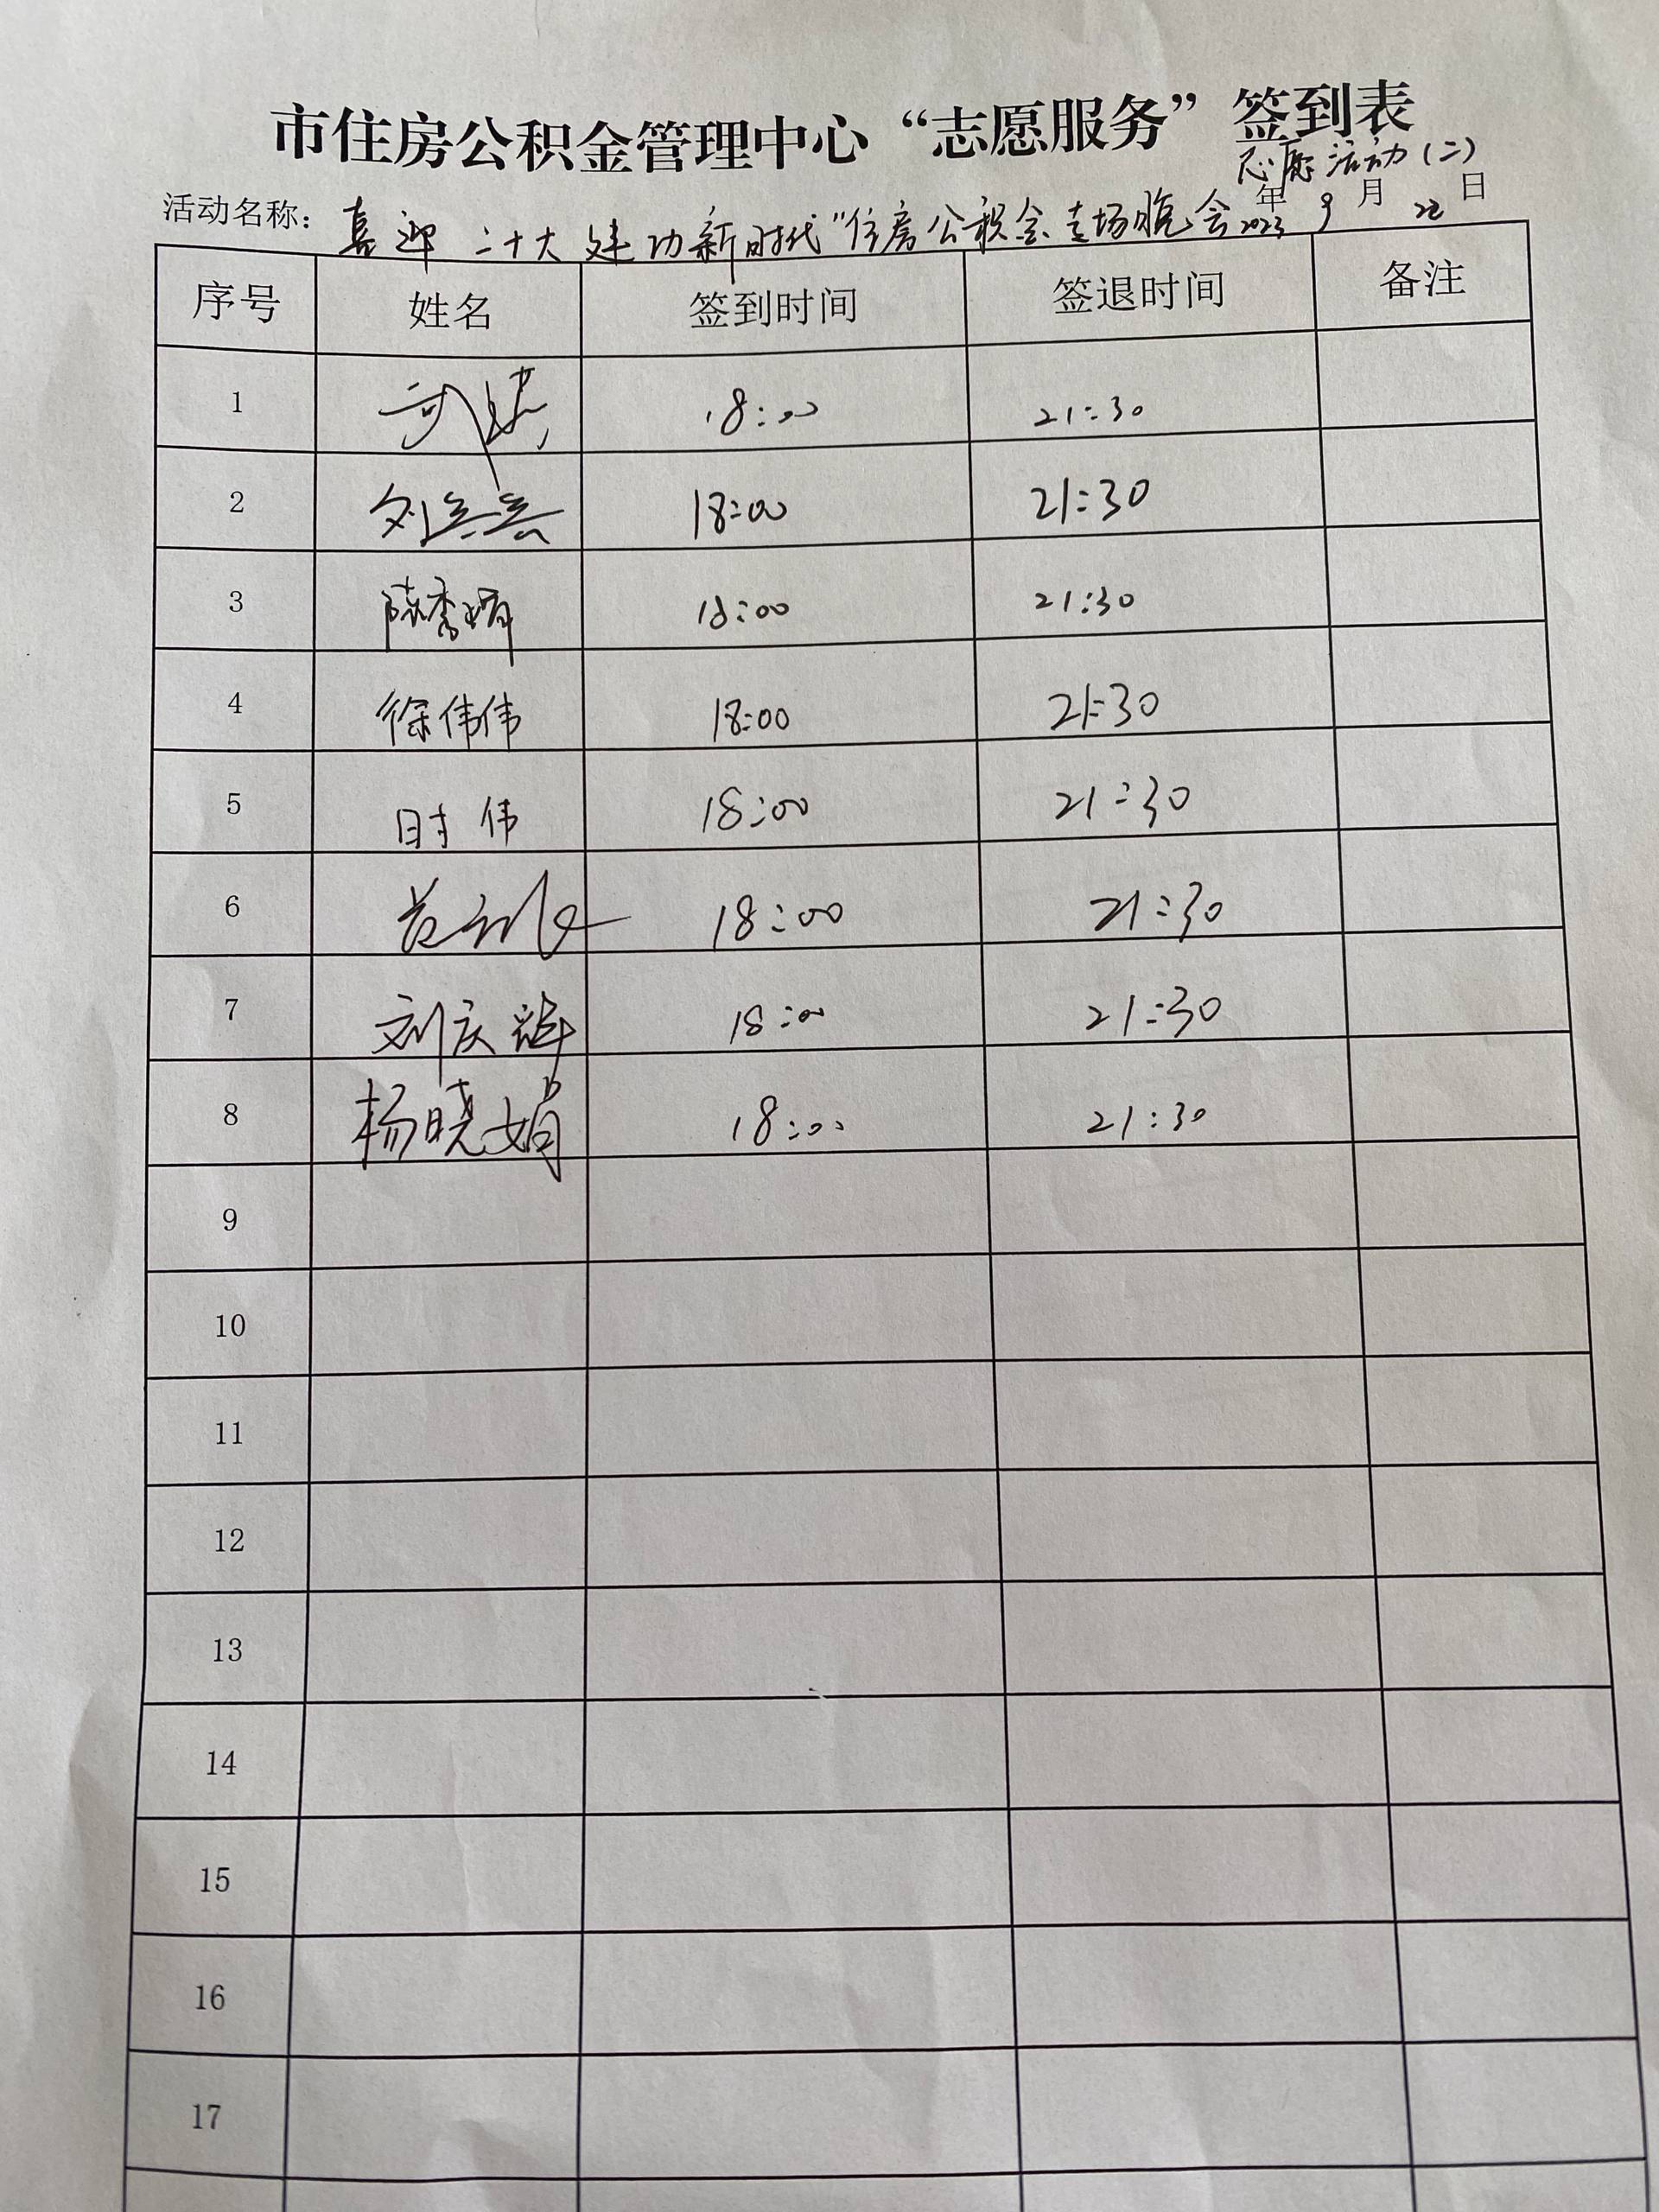 市住房公积金管理中心“志愿服务”签到表
志愿活动(二)
活动名称: 喜迎二十大 建功新时代"住房公积金专场晚会 2023年9月22日
序号 姓名 签到时间 签退时间 备注
1 18:00 21:30
2 18:00 21:30
3 陈秀娟 18:00 21:30
4 徐伟伟 18:00 21:30
5 时伟 18:00 21:30
6 18:00 21:30
7 刘庆辉 18:00 21:30
8 杨晓娟 18:00 21:30
9
10
11
12
13
14
15
16
17